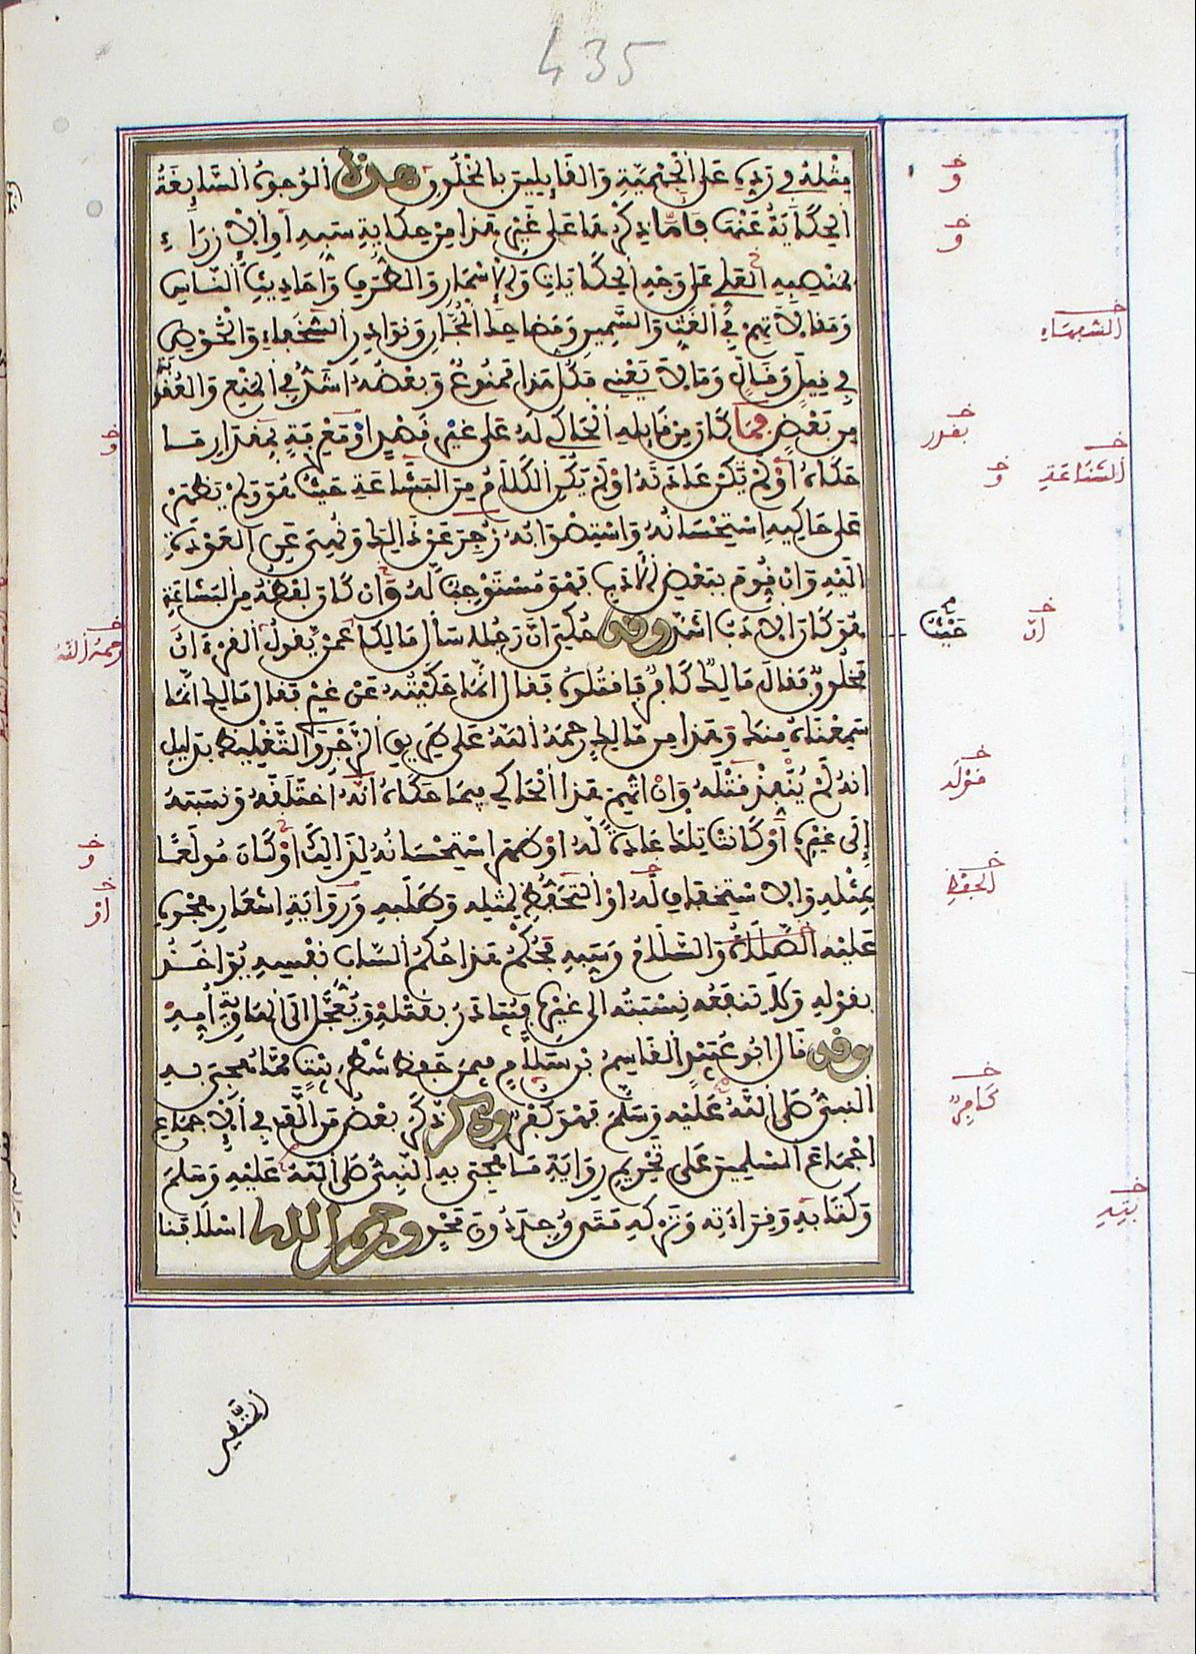 435
مثله في رده على الجهمية والقايلين بالمخلوق هذه الوجوه السايغة
الحكاية عنها فاما ذكرها على غير هذا من حكاية سبه او الازراء
بمنصبه العلي على وجه الحكايات والاسمار والطرف واحاديث الناس
ومقالاتهم في الغث والسمين ومضاحك المجان ونوادر السخفاء والخوض
في قيل وقال وما لا يعني فكل هذا ممنوع وبعضه اشد في المنع والعقوبة
من بعض فما كان من قايله الحاكي له على غير قصد او معرفة بمقدار ما
حكاه او لم تكن عادته او لم يكن الكلام من البشاعة حيث هو ولم يظهر
على حاكيه استحسانه واستصوابه زجر عن ذلك ونهي عن العودة
اليه وان قوم ببعض الادب فهو مستوجب له وان كان لفظه من البشاعة
حيث
هو كان الادب اشد وقد حكي ان رجلا سال مالكا عمن يقول القرءان
مخلوق فقال مالك كافر فاقتلوه فقال انما حكيته عن غيري فقال مالك انما
سمعناه منك وهذا من مالك رحمه الله على طريق الزجر والتغليظ بدليل
انه لم ينفذ قتله وان اتهم هذا الحاكي فيما حكاه انه اختلقه ونسبه
الى غيره او كانت تلك عادة له او ظهر استحسانه لذلك او كان مولعا
بمثله والاستخفاف له او التحفظ لمثله وطلبه ورواية اشعار هجوه
عليه الصلاة والسلام وسبه فحكم هذا حكم الساب نفسه يؤاخذ
بقوله ولا تنفعه نسبته الى غيره فيبادر بقتله ويعجل الى الهاوية امه
وقد قال ابو عبيد القاسم بن سلام فيمن حفظ شطر بيت مما هجي به
النبي صلى الله عليه وسلم فهو كفر وقد ذكر بعض من الف في الاجماع
اجماع المسلمين على تحريم رواية ما هجي به النبي صلى الله عليه وسلم
وكتابه وقراءته وتركه متى وجد دون محو ورحم الله اسلافنا
المتقين
خ
و
خ
و
خ
السفهاء
خ
بقدر
خ
الشناعة
خ
و
خ
ان
خ
قوله
خ
الحفظ
خ
كافر
خ
بيته
خ
و
خ
رحمه الله
خ
و
خ
او